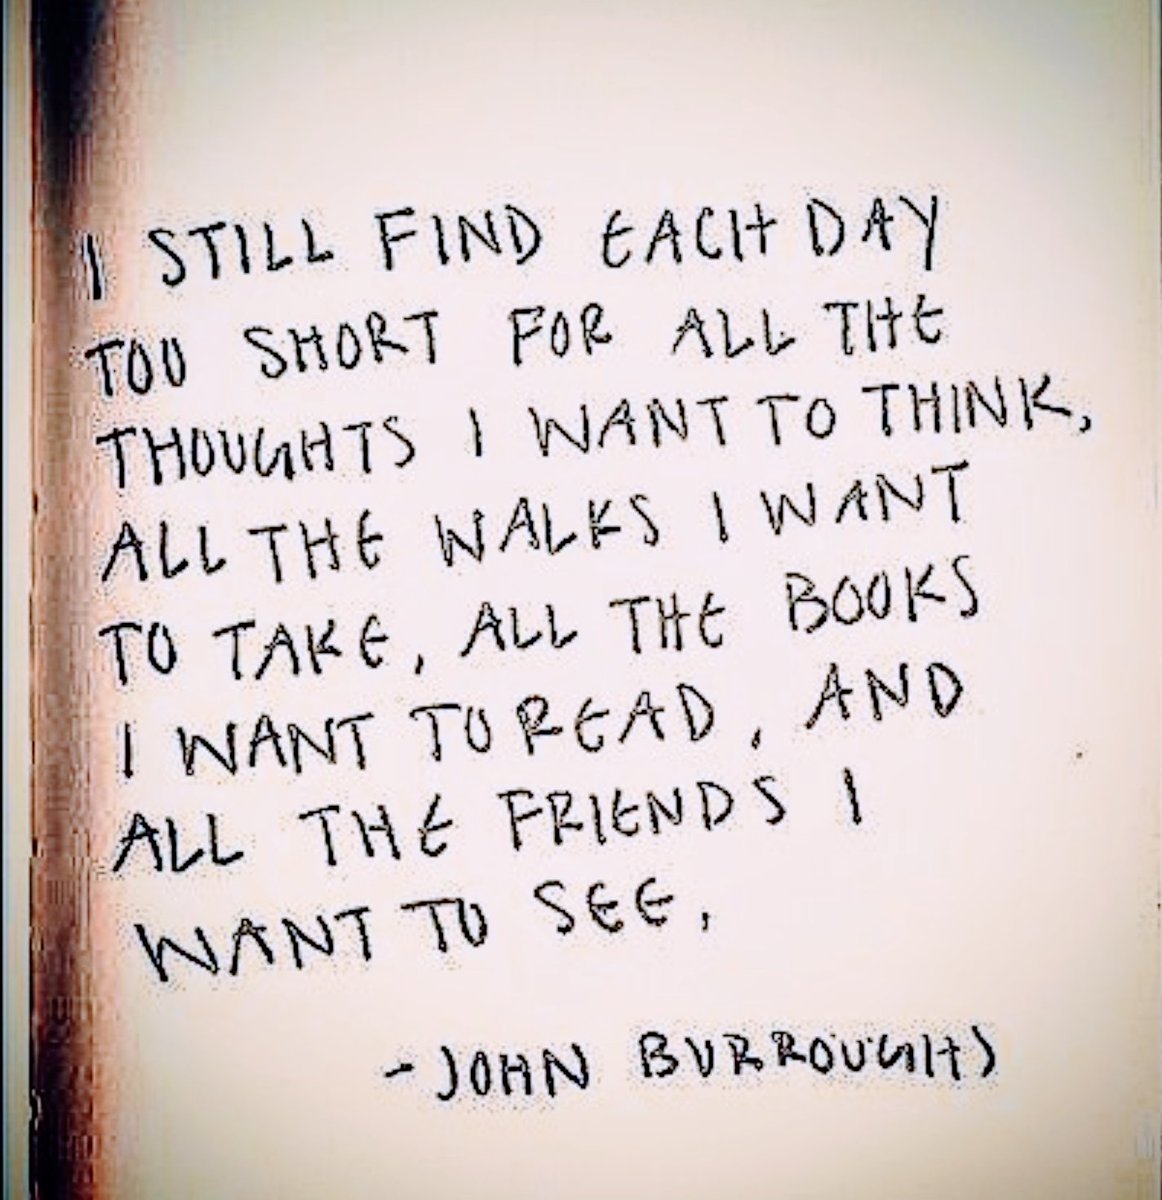 I STILL FIND EACH DAY
TOO SHORT FOR ALL THE
THOUGHTS I WANT TO THINK,
ALL THE WALKS I WANT
TO TAKE, ALL THE BOOKS
I WANT TO READ, AND
ALL THE FRIENDS I
WANT TO SEE,
- JOHN BURROUGHS